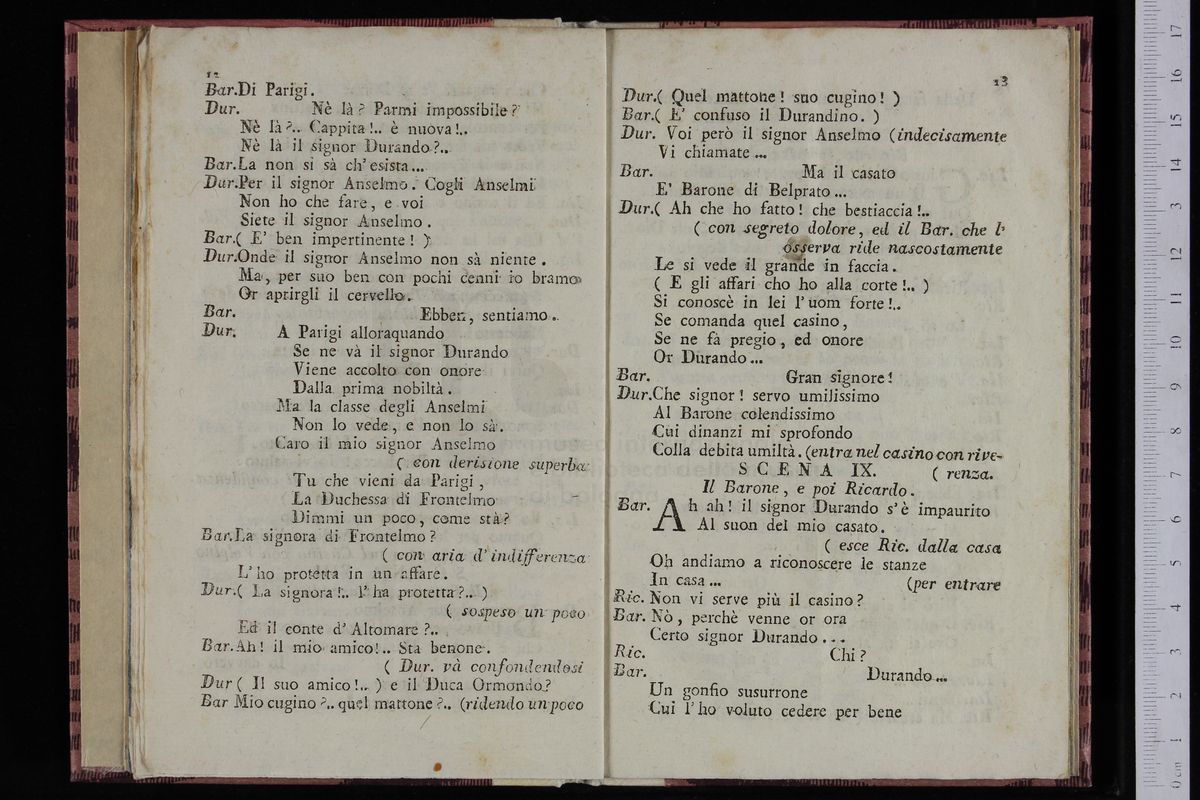 12
Bar.Di Parigi.
Dur. Nè là? Parmi impossibile?
Nè là?.. Cappita!.. è nuova!..
Nè là il signor Durando?..
Bar.La non si sà ch' esista...
Dur.Per il signor Anselmo. Cogli Anselmi
Non ho che fare, e voi
Siete il signor Anselmo.
Bar.( E' ben impertinente! )
Dur.Onde il signor Anselmo non sà niente.
Ma, per suo ben con pochi cenni io bramo
Or aprirgli il cervello.
Bar. Ebben, sentiamo..
Dur. A Parigi alloraquando
Se ne và il signor Durando
Viene accolto con onore
Dalla prima nobiltà.
Ma la classe degli Anselmi
Non lo vede, e non lo sà.
Caro il mio signor Anselmo
( con derisione superba
Tu che vieni da Parigi,
La Duchessa di Frontelmo
Dimmi un poco, come stà?
Bar.La signora di Frontelmo?
( con aria d' indifferenza
L' ho protetta in un affare.
Dur.( La signora!.. l' ha protetta?.. )
( sospeso un poco
Ed il conte d' Altomare?..
Bar.Ah! il mio amico!.. Sta benone.
( Dur. và confondendosi
Dur ( Il suo amico!.. ) e il Duca Ormondo?
Bar Mio cugino?.. quel mattone?.. (ridendo un poco
13
Dur.( Quel mattone! suo cugino! )
Bar.( E' confuso il Durandino. )
Dur. Voi però il signor Anselmo (indecisamente
Vi chiamate...
Bar. Ma il casato
E' Barone di Belprato...
Dur.( Ah che ho fatto! che bestiaccia!..
( con segreto dolore, ed il Bar. che l'
osserva ride nascostamente
Le si vede il grande in faccia.
( E gli affari cho ho alla corte!.. )
Si conoscè in lei l' uom forte!..
Se comanda quel casino,
Se ne fà pregio, ed onore
Or Durando...
Bar. Gran signore!
Dur.Che signor! servo umilissimo
Al Barone colendissimo
Cui dinanzi mi sprofondo
Colla debita umiltà. (entra nel casino con rive-
SCENA IX. ( renza.
Il Barone, e poi Ricardo.
Bar. Ah ah! il signor Durando s' è impaurito
Al suon del mio casato.
( esce Ric. dalla casa
Oh andiamo a riconoscere le stanze
In casa... (per entrare
Ric. Non vi serve più il casino?
Bar. Nò, perchè venne or ora
Certo signor Durando...
Ric. Chi?
Bar. Durando...
Un gonfio susurrone
Cui l' ho voluto cedere per bene